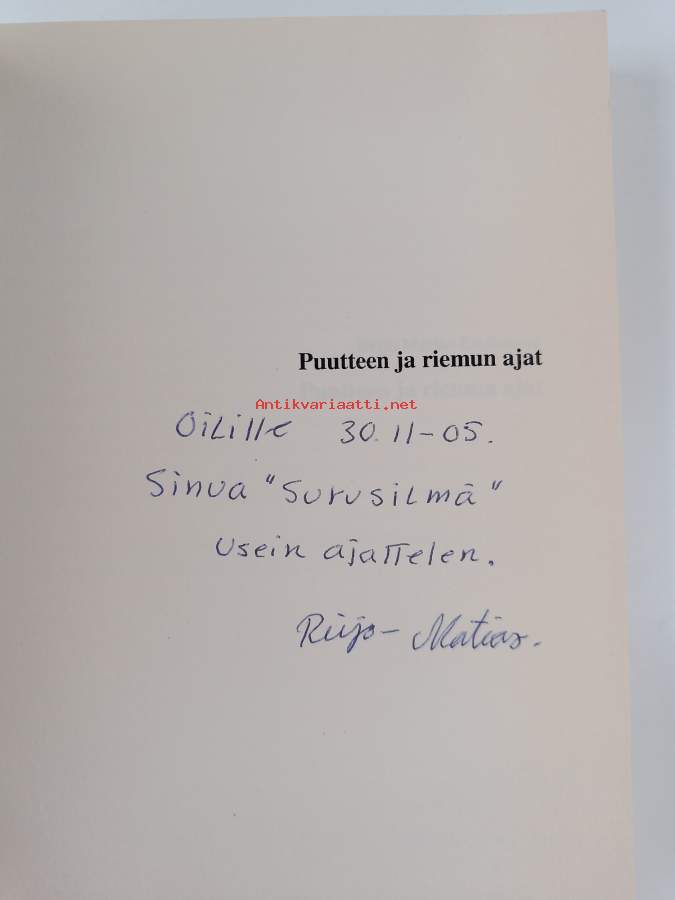 Puutteen ja riemun ajat
Antikvariaatti.net
Oilille 30.11-05.
Sinua "Surusilmä"
Usein ajattelen.
Reijo - Matias.